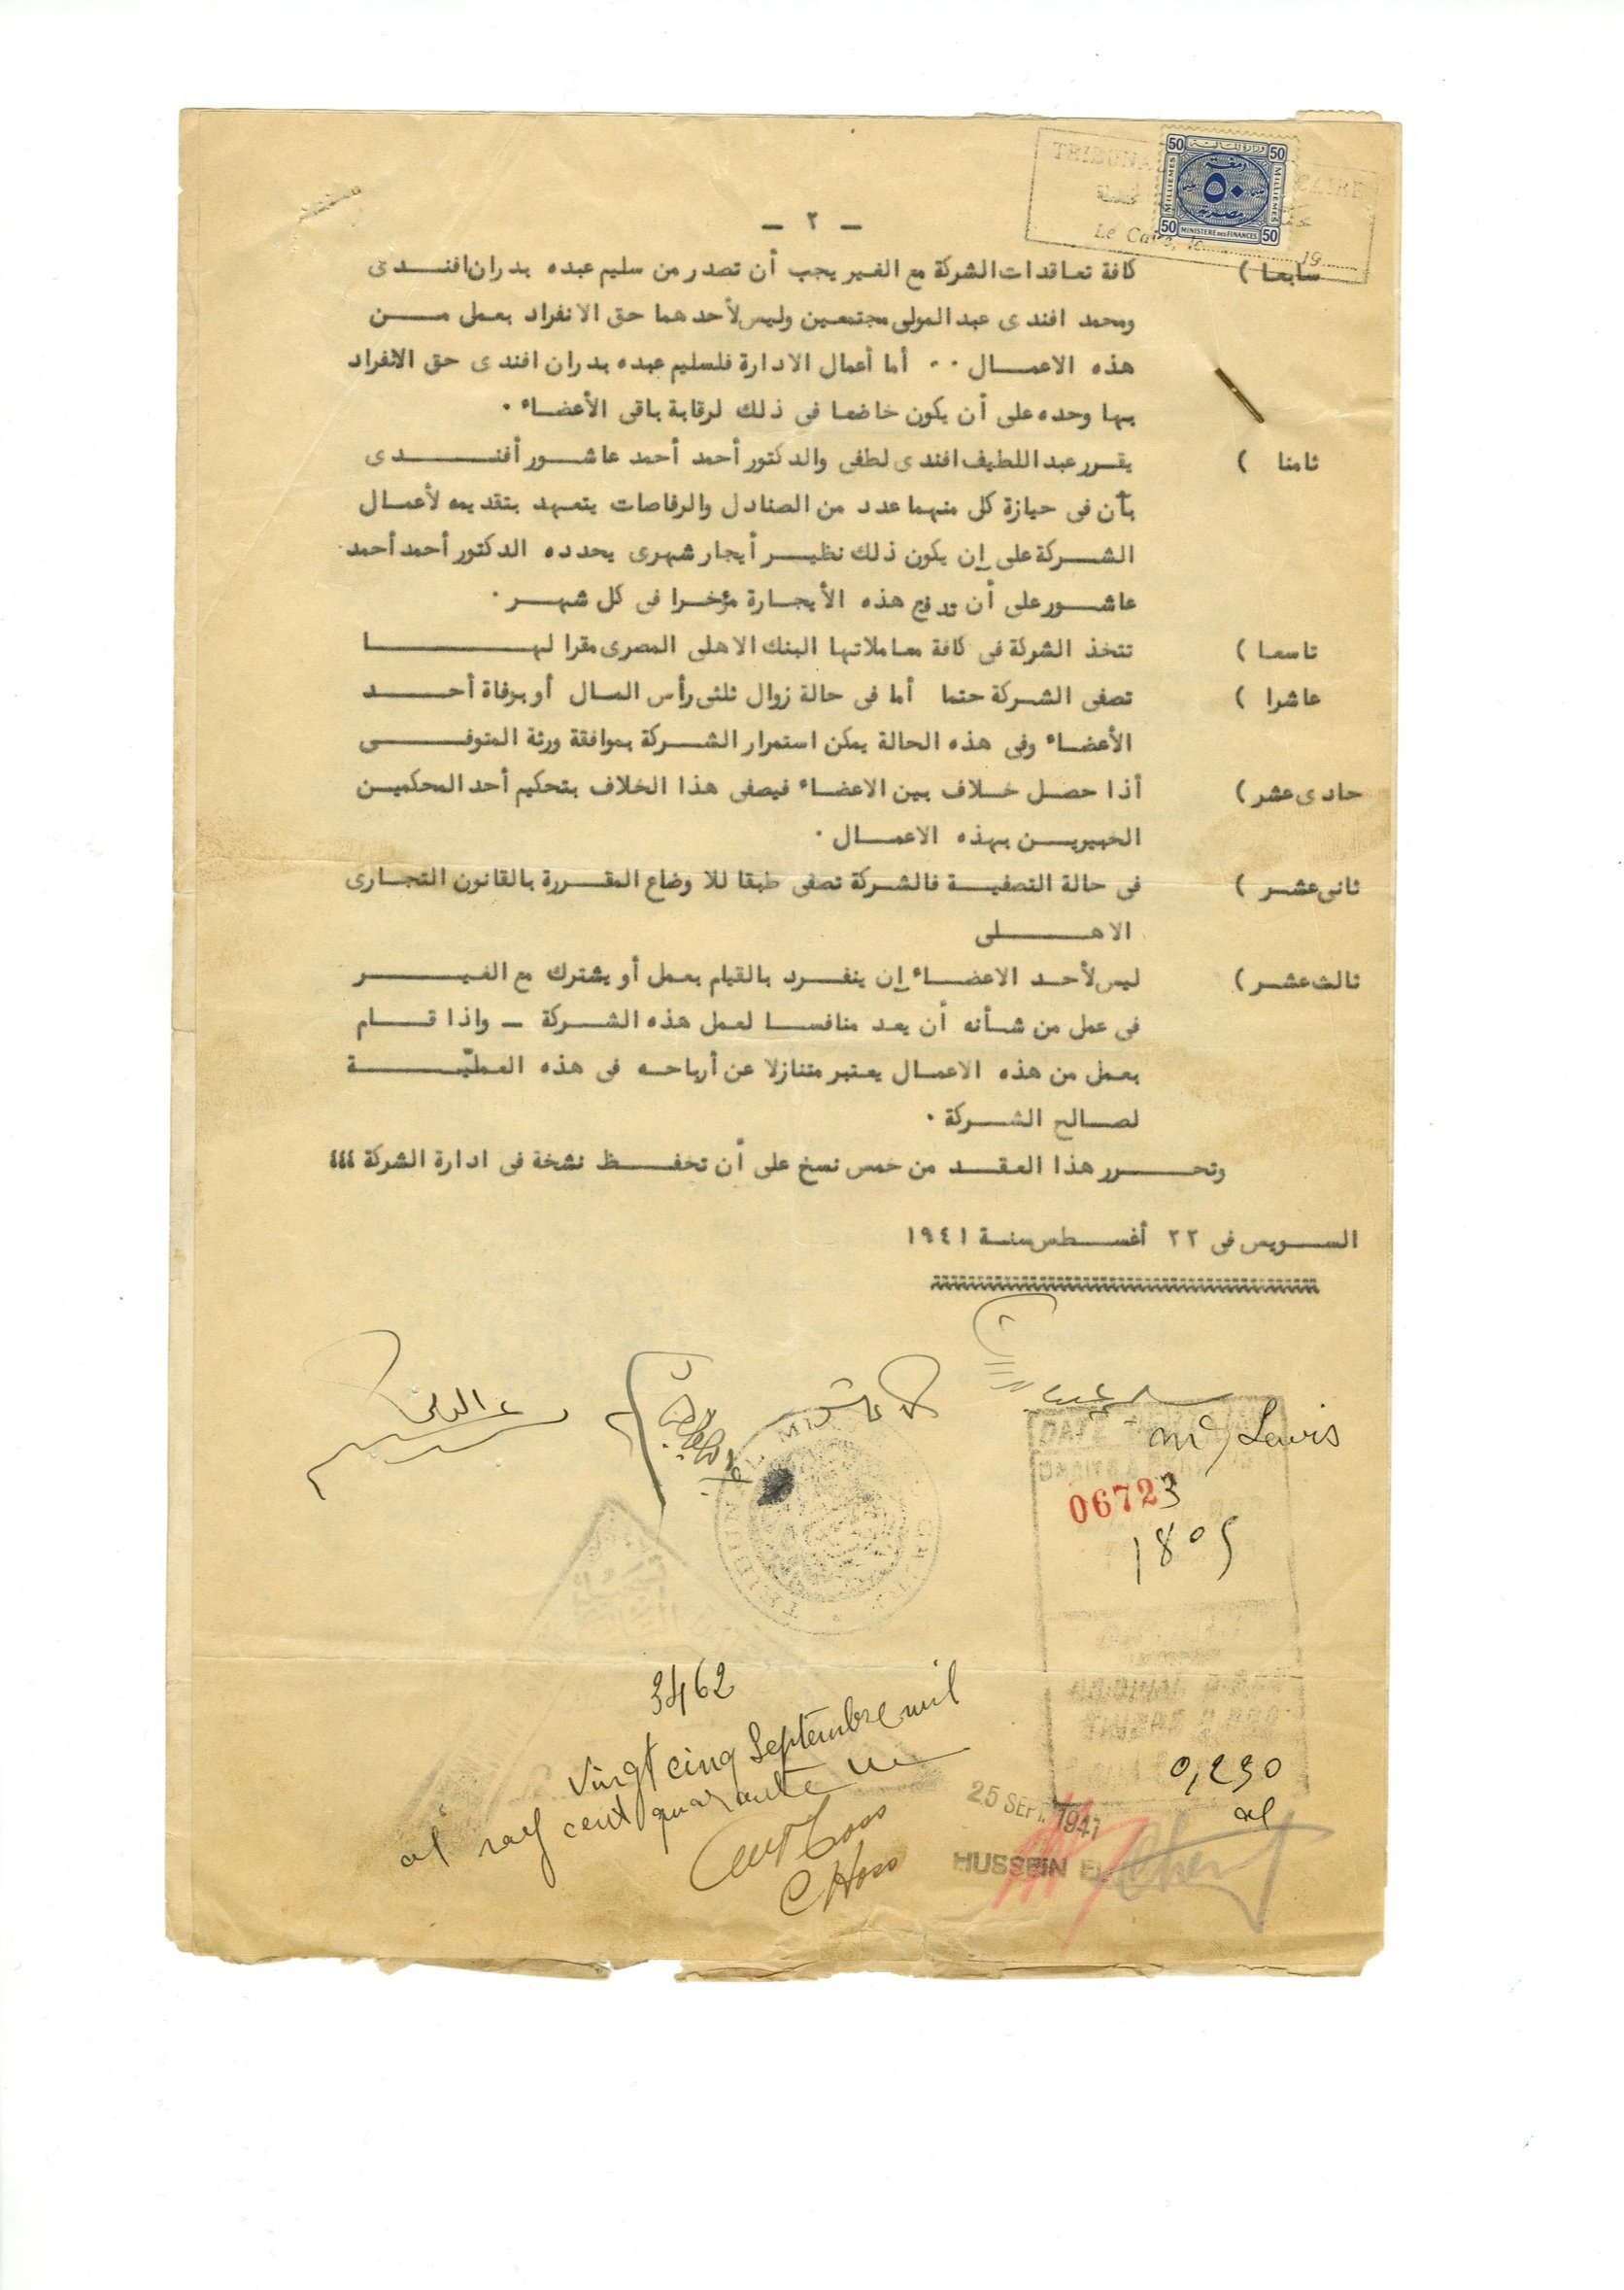 TRIBUNA CAIRE
Le Caire, le 19
50 وزارة المالية 50
MILLIEMES دمغة MILLIEMES
٥٠
مصرية
50 MINISTERE DES FINANCES 50
— ٢ —
سابعا ) كافة تعاقدات الشركة مع الغير يجب أن تصدر من سليم عبده بدران افندى
ومحمد افندى عبد المولى مجتمعين وليس لأحدهما حق الانفراد بعمل من
هذه الاعمال ٠٠ أما أعمال الادارة فلسليم عبده بدران افندى حق الانفراد
بها وحده على أن يكون خاضعا فى ذلك لرقابة باقى الأعضاء ٠
ثامنا ) يقرر عبد اللطيف افندى لطفى والدكتور أحمد أحمد عاشور أفندى
بأن فى حيازة كل منهما عدد من الصنادل والرفاصات يتعهد بتقديمه لأعمال
الشركة على إن يكون ذلك نظير أيجار شهرى يحدده الدكتور أحمد أحمد
عاشور على أن تدفع هذه الأيجارة مؤخرا فى كل شهر ٠
تاسعا ) تتخذ الشركة فى كافة معاملاتها البنك الاهلى المصرى مقرا لها
عاشرا ) تصفى الشركة حتما أما فى حالة زوال ثلثى رأس المال أو بوفاة أحد
الأعضاء وفى هذه الحالة يمكن استمرار الشركة بموافقة ورثة المتوفى
حادى عشر ) أذا حصل خلاف بين الاعضاء فيصفى هذا الخلاف بتحكيم أحد المحكمين
الخبيرين بهذه الاعمال ٠
ثانى عشر ) فى حالة التصفية فالشركة تصفى طبقا للاوضاع المقررة بالقانون التجارى
الاهلى
ثالث عشر ) ليس لأحد الاعضاء إن ينفرد بالقيام بعمل أو يشترك مع الغير
فى عمل من شأنه أن يعد منافسا لعمل هذه الشركة — واذا قام
بعمل من هذه الاعمال يعتبر متنازلا عن أرباحه فى هذه العمليّة
لصالح الشركة ٠
وتحرر هذا العقد من خمس نسخ على أن تحفظ نشخة فى ادارة الشركة ٤٤٤
السويس فى ٢٢ أغسطس سنة ١٩٤١
DATE
Lewis
06723
1805
TRIBUNAL MIXTE
3462
Vingt cinq Septembre mil
neuf cent quarante un
0,290
25 SEPT. 1941
HUSSEIN EL